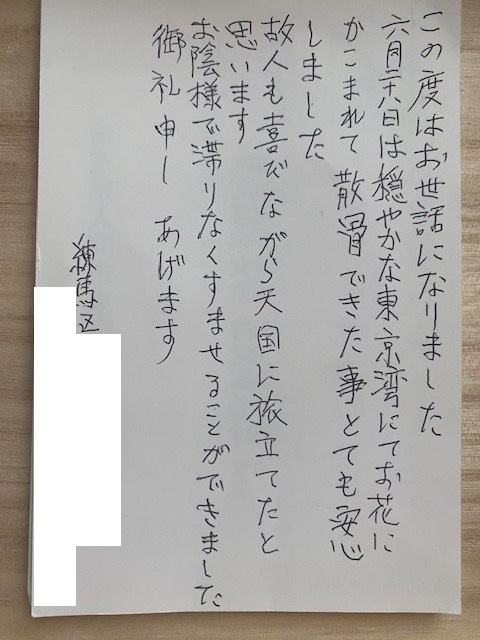 この度はお世話になりました
六月二十八日は穏やかな東京湾にてお花に
かこまれて散骨できた事とても安心
しました
故人も喜びながら天国に旅立てたと
思います
お陰様で滞りなくすませることができました
御礼申し あげます
練馬区